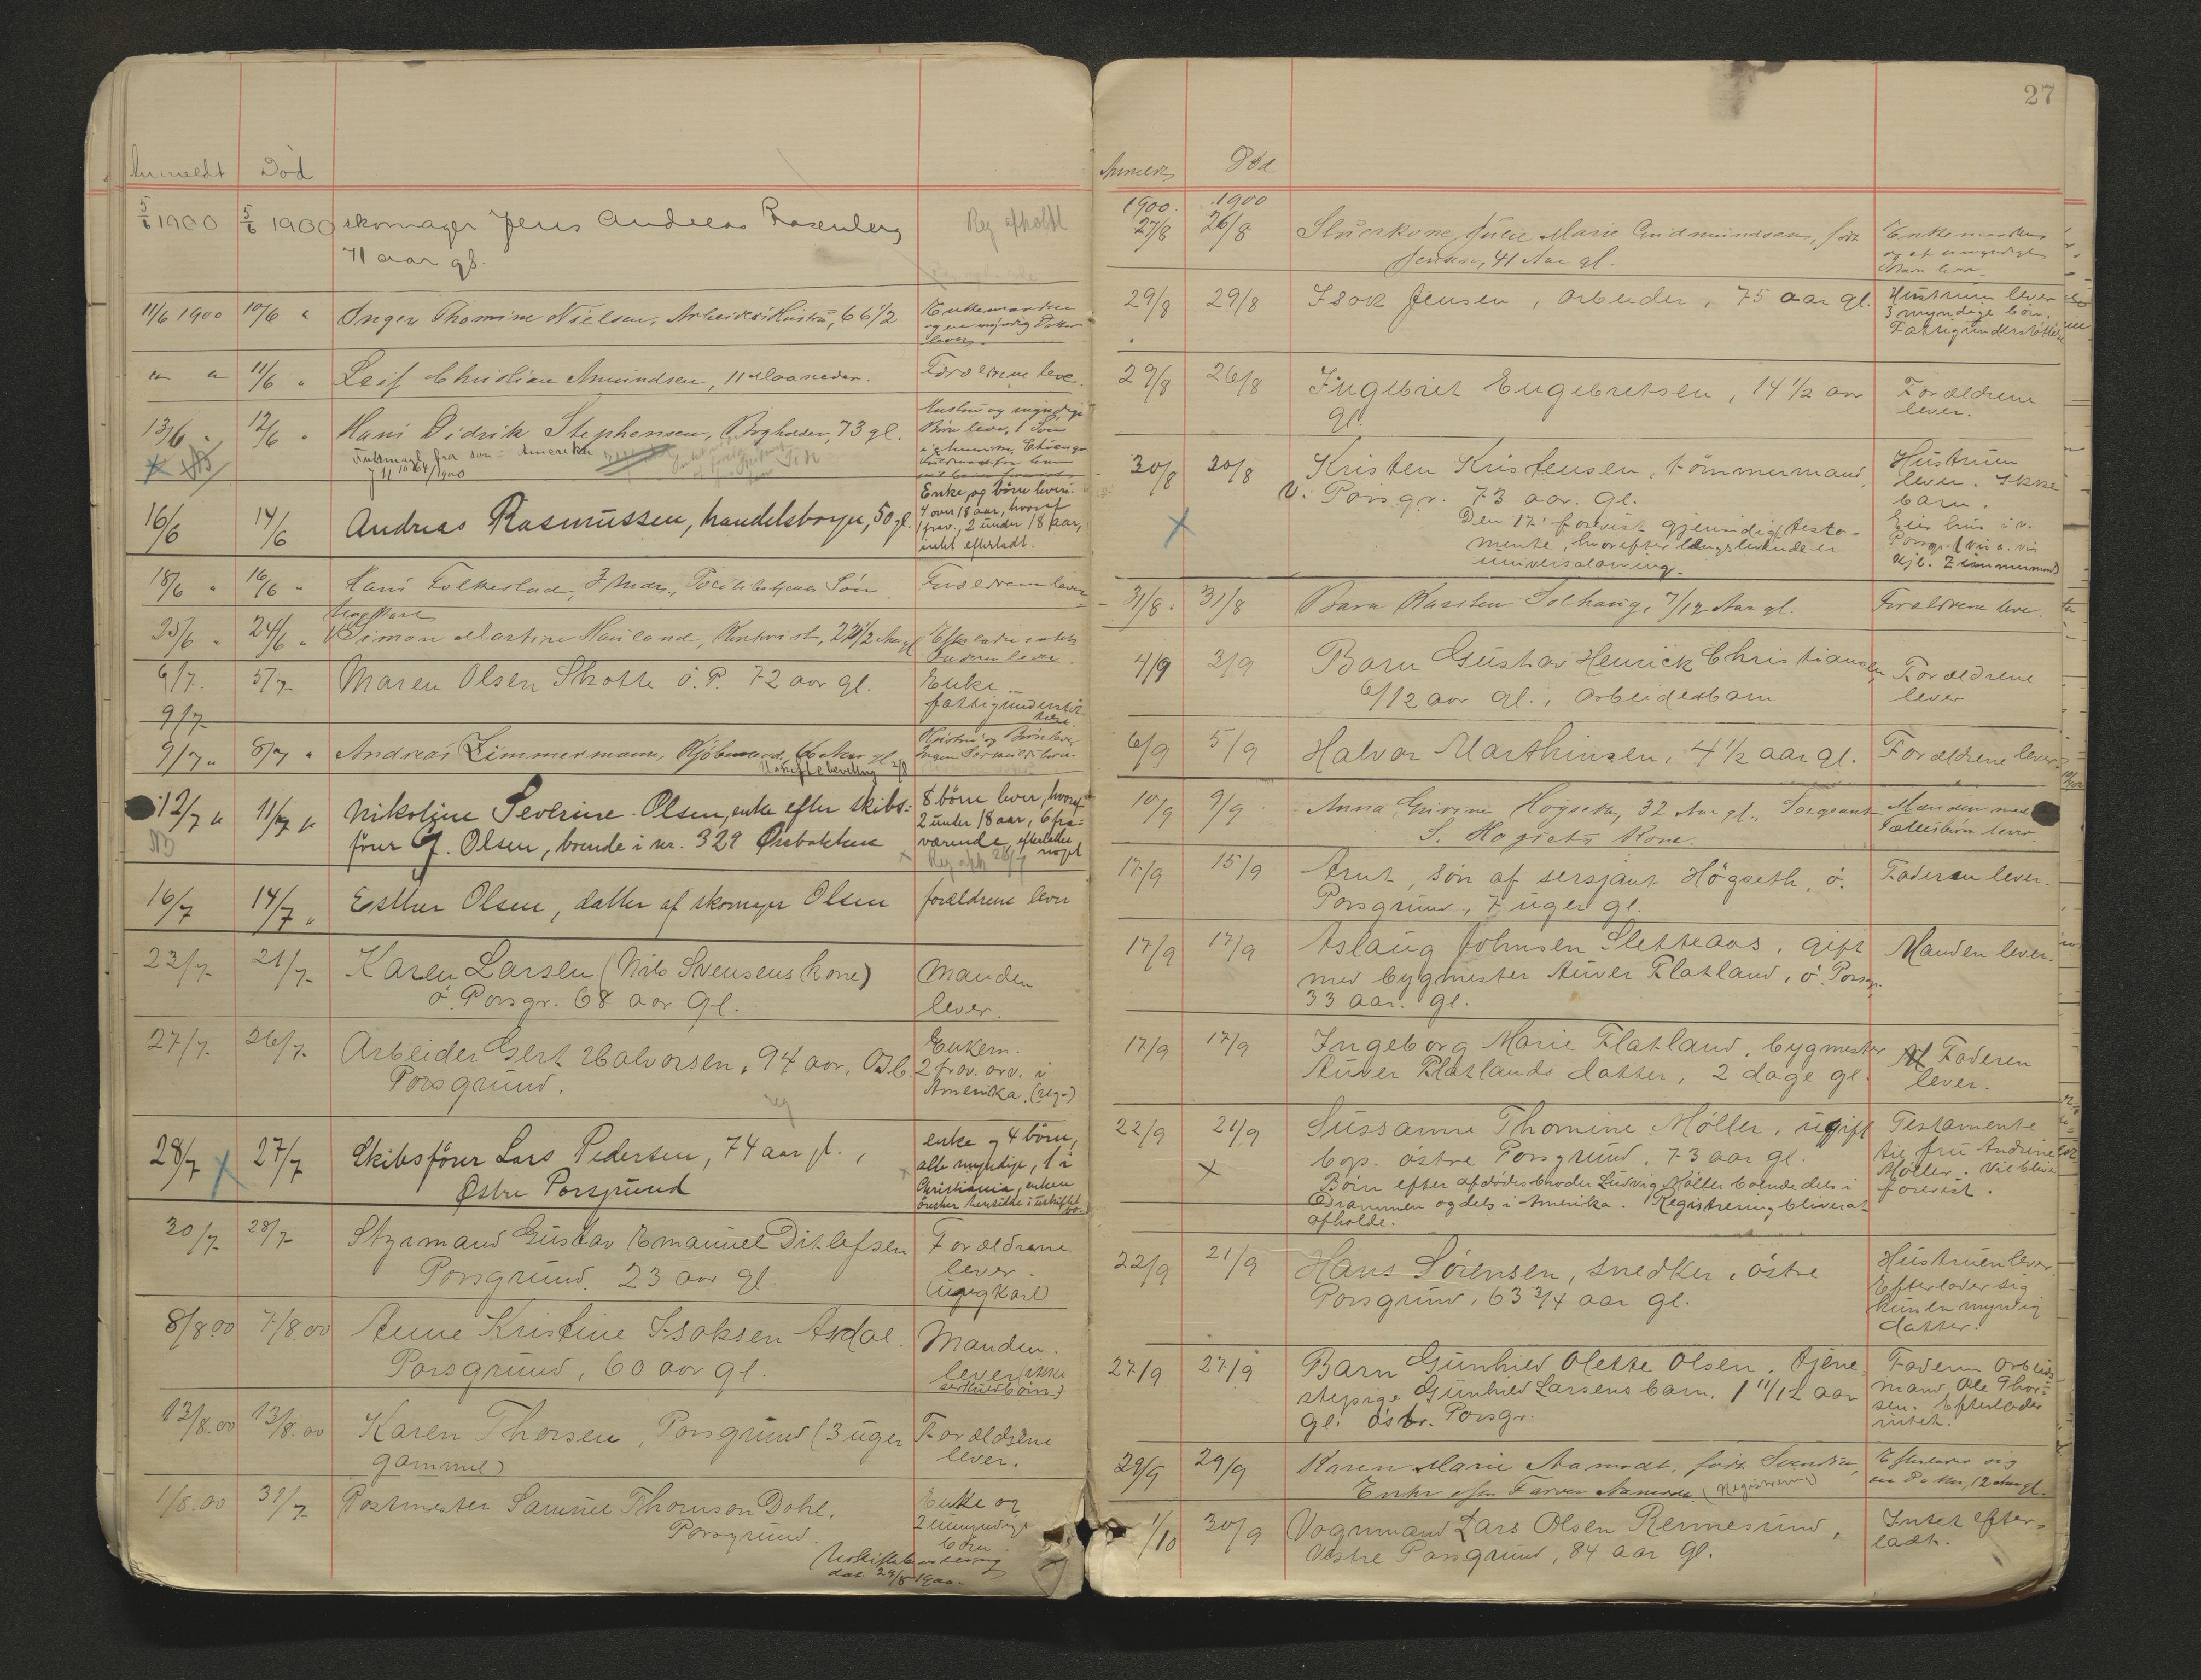 Anmeldt Död
5/6 1900 5/6 1900 skomager Jens Andreas Rosenberg Reg afholdt
71 aar gl.
11/6 1900 10/6 " Inger Thomine Nielsen, Arbeiders Hustru, 66 1/2 Enkemanden
og en myndig Datter
lever.
" " 11/6 " Leif Christian Amundsen, 11 Maaneder. Forældrene leve.
13/6 " 12/6 " Hans Didrik Stephensen, Bogholder, 73 gl. Hustru og myndige
Børn lever, 1 Søn
i Amerika, Chicago
Fuldmagt fra søn i Amerika
16/6 14/6 Andreas Rasmussen, handelsborger, 50 gl. Enke og börn lever.
4 over 18 aar, hvoraf
1 frav., 2 under 18 aar,
intet efterladt.
18/6 " 16/6 " Hans Folkestad, 3 Mdr., Søn Forældrene lever
Ungkarl
25/6 " 24/6 " Simon Martin Hauland, Kontorist, 22 1/2 Aar gl Efterlader intet
lever.
6/7. 5/7 Maren Olsen Skotte ö. P. 72 aar gl. Enke
fattigunderstöt-
telse.
9/7
9/7 " 8/7 " Andreas Zimmermann, Kjöbmand, Aar gl Hustru og Børn lever
Ingen Særkuldsbørn.
Uskiftebevilling 2/8
12/7 " 11/7 " Nikoline Severine Olsen, enke efter skibs- 8 börn lever, hvoraf
2 under 18 aar, 6 fra-
förer J. Olsen, boende i nr. 329 Øvrebakken værende, efterlader
noget
Reg afh 26/7
16/7 14/7 " Esther Olsen, datter af skomager Olsen forældrene lever
23/7 21/7 Karen Larsen (Nils Svensens kone) Manden
ö. Porsgr. 68 aar gl. lever.
27/7. 26/7. Arbeider Gert Halvorsen, 94 aar, Enkem.
Porsgrund. 2 frav. arv. i
Amerika. (reg.)
reg
28/7 27/7 Skibsförer Lars Pedersen, 74 aar gl., enke og 4 börn,
alle myndige, 1 i
Østre Porsgrund Christiania, enken
ønsker hensidde i uskiftet bo.
30/7 28/7 Styrmand Gustav Emanuel Ditlefsen Forældrene
Porsgrund. 23 aar gl. lever.
(ungkarl)
8/8.00 7/8.00 Anne Kristine Isaksen Askdal Manden.
Porsgrund, 60 aar gl. lever (ikke
særkuldbörn)
13/8.00 13/8.00 Karen Thorsen, Porsgrund (3 uger Forældrene
gammel) lever.
1/8.00 31/7 Postmester Samuel Thomson Dahl, Enke og
Porsgrund. 2 umyndige
börn.
Uskiftebevilling
dat 29/8 1900.
27
Anmeldt Død
1900. 1900
27/8 26/8 Julie Marie Gudmundsen, født Enkemanden
Jensen, 41 Aar gl. og et umyndigt
Barn lever
29/8 29/8 Isak Jensen, arbeider, 75 aar gl. Hustruen lever
3 myndige börn.
Fattigunderstöttelse
29/8 26/8 Ingebret Engebretsen, 14 1/2 aar Forældrene
gl. lever.
30/8 30/8 Kristen Kristensen, tömmermand, Hustruen
v. Porsgr. 73 aar. gl. lever. Ikke
barn.
Den 17 forevist gjensidig testa- Eier hus i v.
mente, hvorefter længstlevende er Porsgr. (vis a. vis
universalarving. Kjb. Zimmermand)
31/8. 31/8 Barn Karsten Solhaug, 7/12 Aar gl. Forældrene leve.
4/9 3/9 Barn Gustav Henrick Christiansen, Forældrene
6/12 aar gl., arbeiderbarn lever
6/9 5/9 Halvor Marthinsen, 4 1/2 aar gl. Forældrene lever
10/9 9/9 Anna Høgseth, 32 Aar gl., Sergeant Manden med
S. Høgseths Kone. Fællesbørn lever.
17/9 15/9 Arnt, sön af sersjant Högseth, ö. Faderen lever.
Porsgrund, 7 uger gl.
17/9 17/9 Aslaug Johnsen Sletteaas, gift Manden lever.
med bygmester Auver Flatland, ö. Porsgr.
33 aar. gl.
17/9 17/9 Ingeborg Marie Flatland, bygmester Faderen
Auver Flatlands datter, 2 dage gl. lever.
22/9 21/9 Sussanne Thomine Möller, ugift Testamente
bop. östre Porsgrund, 73 aar gl. til fru Andrine
Möller. Vil blive
Börn efter afdödes broder Ludvig Möller boende dels i forevist.
Drammen og dels i Amerika. Registrering bliver at
afholde.
22/9 21/9 Hans Sörensen, snedker, östre Hustruen lever.
Porsgrund, 63 3/4 aar gl. Efterlader sig
kun en myndig
datter.
27/9 27/9 Barn Gunhild Olette Olsen, tjene- Faderen arbeids-
stepige Gunhild Larsens barn, 1 11/12 aar mand Ole Thor-
sen. Efterlader
gl. östr. Porsgr. intet.
29/9 29/9 Karen Marie Aamodt, født Svendsen, Efterlader sig
Enke efter Farver Aamodt. (Registrering) en Datter, 12 Aar gl.
1/10 30/9 Vognmand Lars Olsen Rennesund, Intet efter-
Vestre Porsgrund, 84 aar gl. ladt.